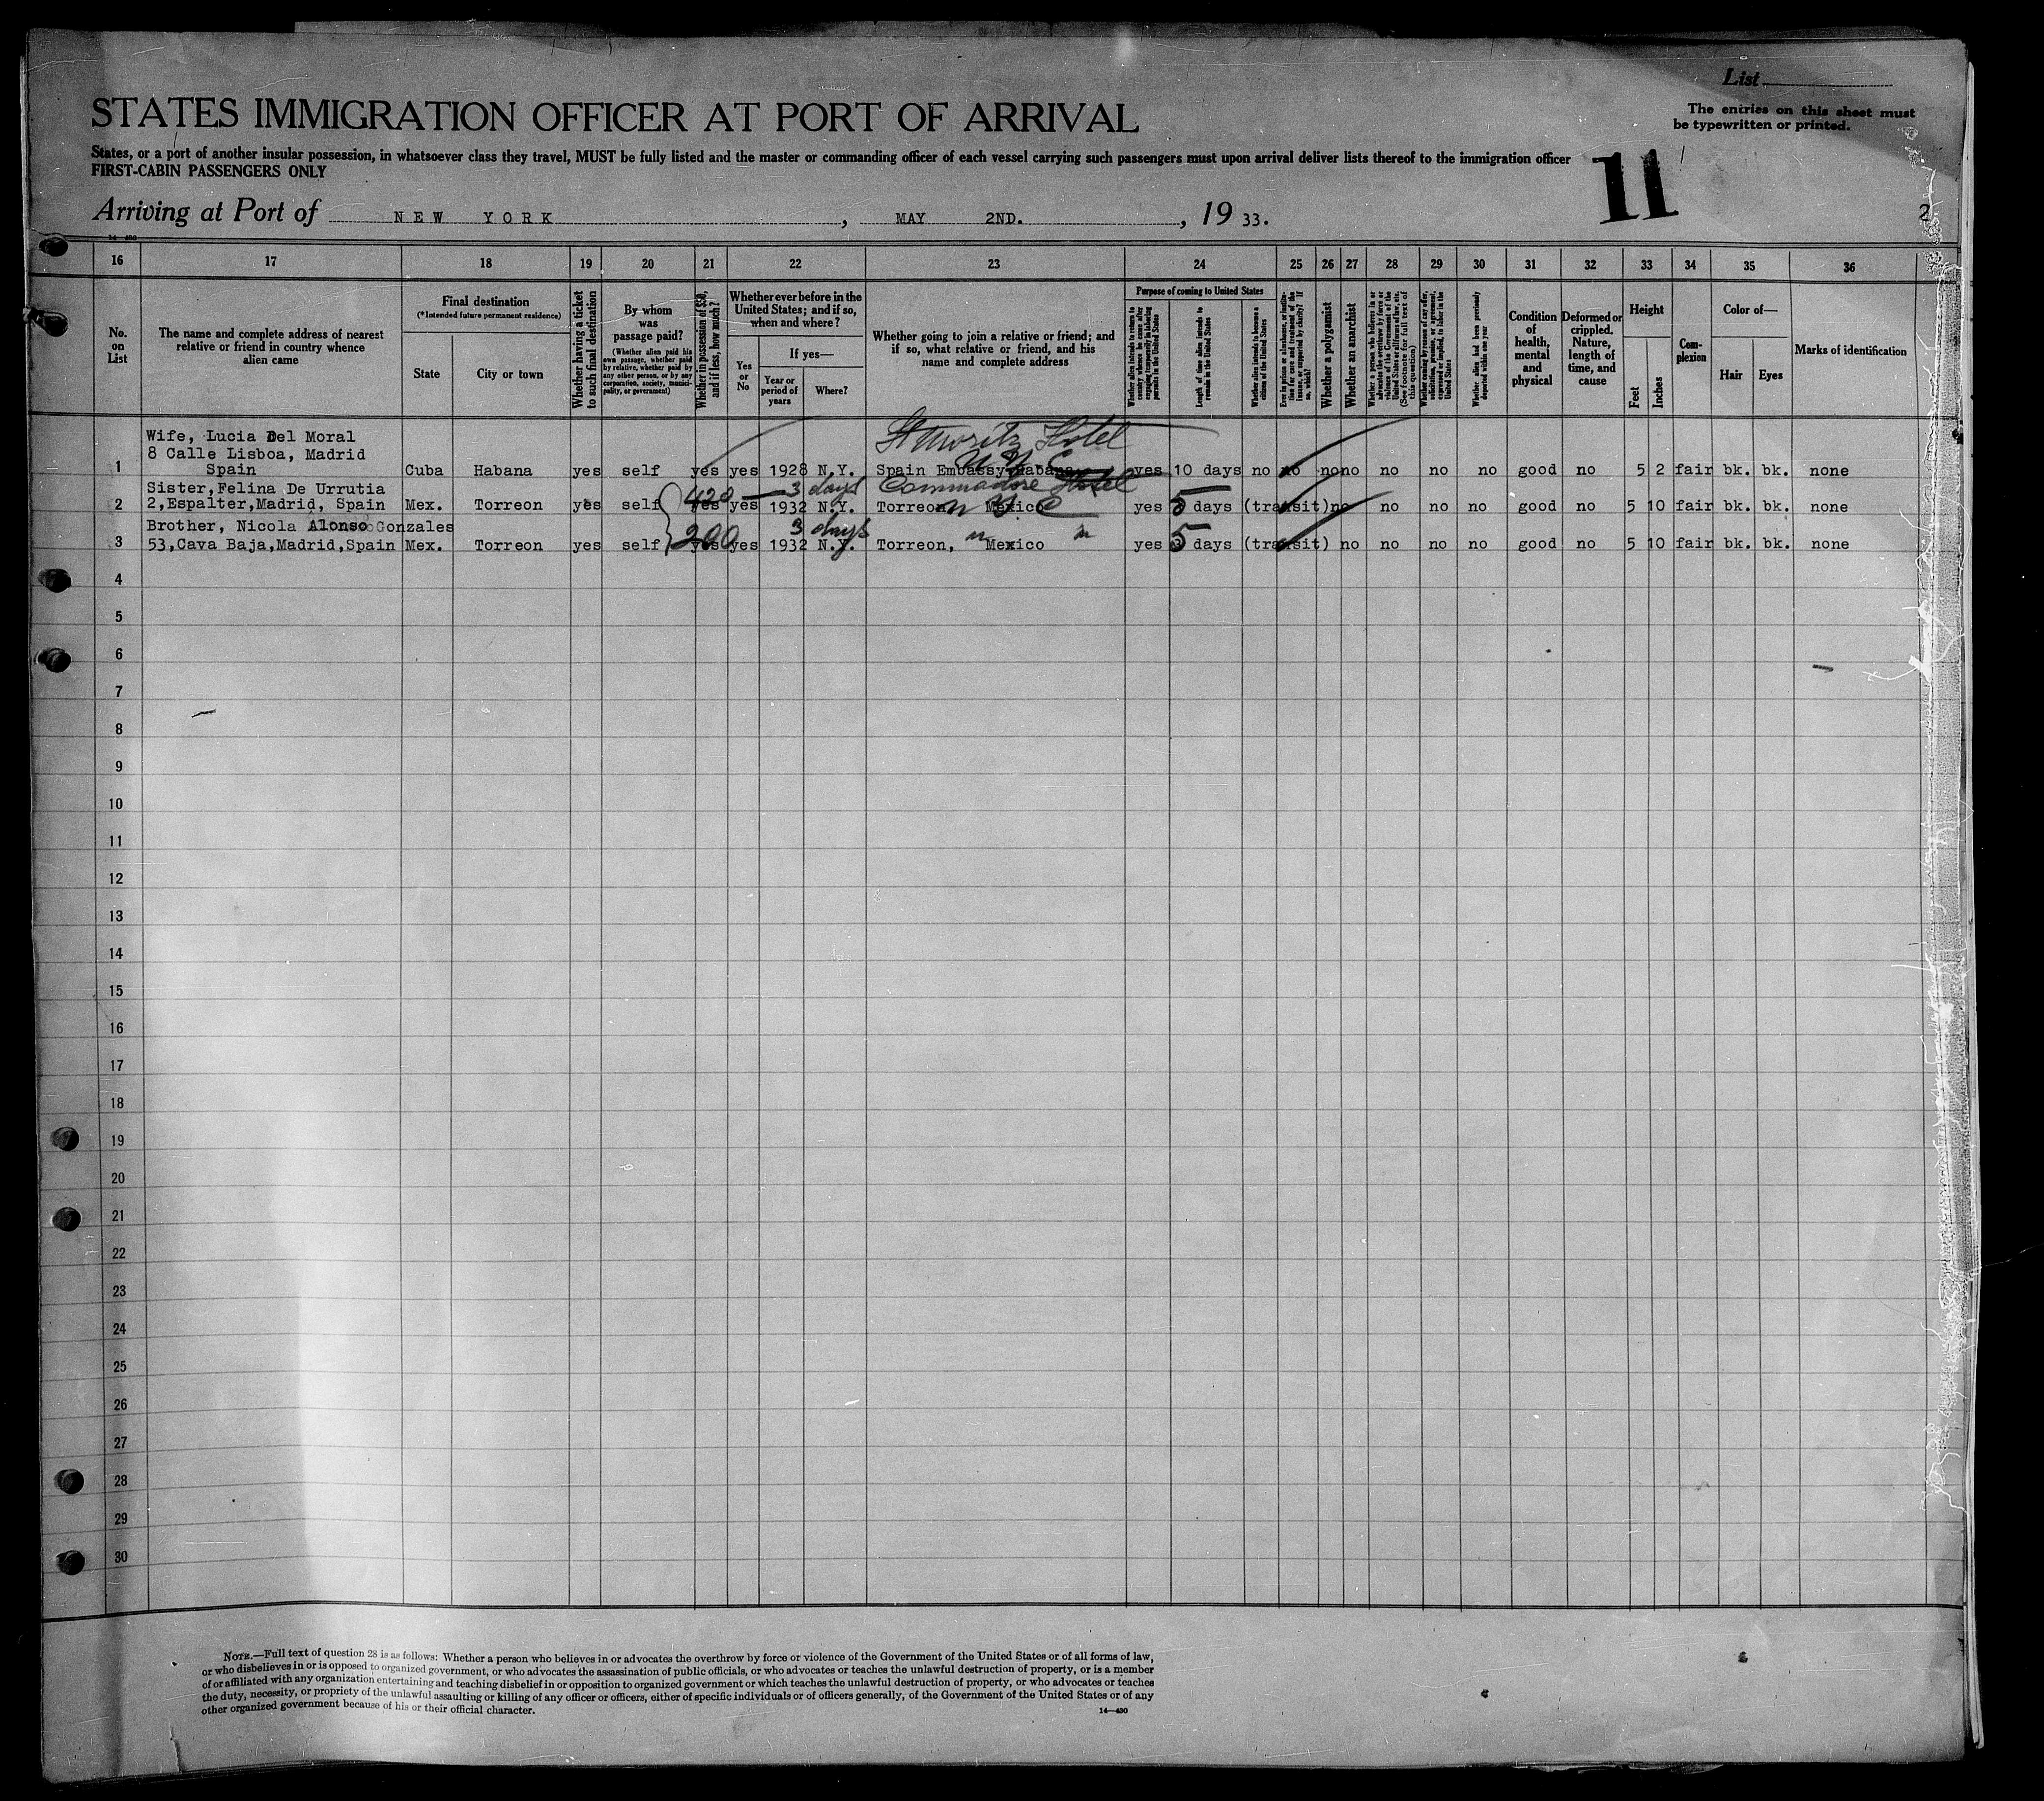 List
The entries on this sheet must
be typewritten or printed.
STATES IMMIGRATION OFFICER AT PORT OF ARRIVAL
States, or a port of another insular possession, in whatsoever class they travel, MUST be fully listed and the master or commanding officer of each vessel carrying such passengers must upon arrival deliver lists thereof to the immigration officer
FIRST-CABIN PASSENGERS ONLY
11
2
Arriving at Port of NEW YORK, MAY 2ND., 19 33.
14-430
16 17 18 19 20 21 22 23 24 25 26 27 28 29 30 31 32 33 34 35 36
No. on List
The name and complete address of nearest relative or friend in country whence alien came
Final destination
(*Intended future permanent residence)
State
City or town
Whether having a ticket to such final destination
By whom was passage paid?
(Whether alien paid his own passage, whether paid by relative, whether paid by any other person, or by any corporation, society, municipality, or government)
Whether in possession of $50, and if less, how much?
Whether ever before in the United States; and if so, when and where?
Yes or No
If yes—
Year or period of years
Where?
Whether going to join a relative or friend; and if so, what relative or friend, and his name and complete address
Purpose of coming to United States
Whether alien intends to return to country whence he came after engaging temporarily in laboring pursuits in the United States
Length of time alien intends to remain in the United States
Whether alien intends to become a citizen of the United States
Ever in prison or almshouse, or institution for care and treatment of the insane, or supported by charity? If so, which?
Whether a polygamist
Whether an anarchist
Whether a person who believes in or advocates the overthrow by force or violence of the Government of the United States or all forms of law, etc. (See footnote for full text of this question)
Whether coming by reason of any offer, solicitation, promise, or agreement, expressed or implied, to labor in the United States
Whether alien had been previously deported within one year
Condition of health, mental and physical
Deformed or crippled. Nature, length of time, and cause
Height
Feet
Inches
Complexion
Color of—
Hair
Eyes
Marks of identification
St Moritz Hotel
N Y C
Wife, Lucia Del Moral
8 Calle Lisboa, Madrid
1 Spain Cuba Habana yes self yes yes 1928 N.Y. Spain Embassy, Habana yes 10 days no no no no no no no good no 5 2 fair bk. bk. none
Sister, Felina De Urrutia 420 3 days Commodore Hotel
N Y C
2 2,Espalter,Madrid, Spain Mex. Torreon yes self yes yes 1932 N.Y. Torreon, Mexico yes 5 days (transit) no no no no good no 5 10 fair bk. bk. none
Brother, Nicola Alonso Gonzales 200 3 days " "
3 53,Cava Baja,Madrid,Spain Mex. Torreon yes self yes yes 1932 N.Y. Torreon, Mexico yes 5 days (transit) no no no no good no 5 10 fair bk. bk. none
4
5
6
7
8
9
10
11
12
13
14
15
16
17
18
19
20
21
22
23
24
25
26
27
28
29
30
NOTE.—Full text of question 28 is as follows: Whether a person who believes in or advocates the overthrow by force or violence of the Government of the United States or of all forms of law,
or who disbelieves in or is opposed to organized government, or who advocates the assassination of public officials, or who advocates or teaches the unlawful destruction of property, or is a member
of or affiliated with any organization entertaining and teaching disbelief in or opposition to organized government or which teaches the unlawful destruction of property, or who advocates or teaches
the duty, necessity, or propriety of the unlawful assaulting or killing of any officer or officers, either of specific individuals or of officers generally, of the Government of the United States or of any
other organized government because of his or their official character.
14—430